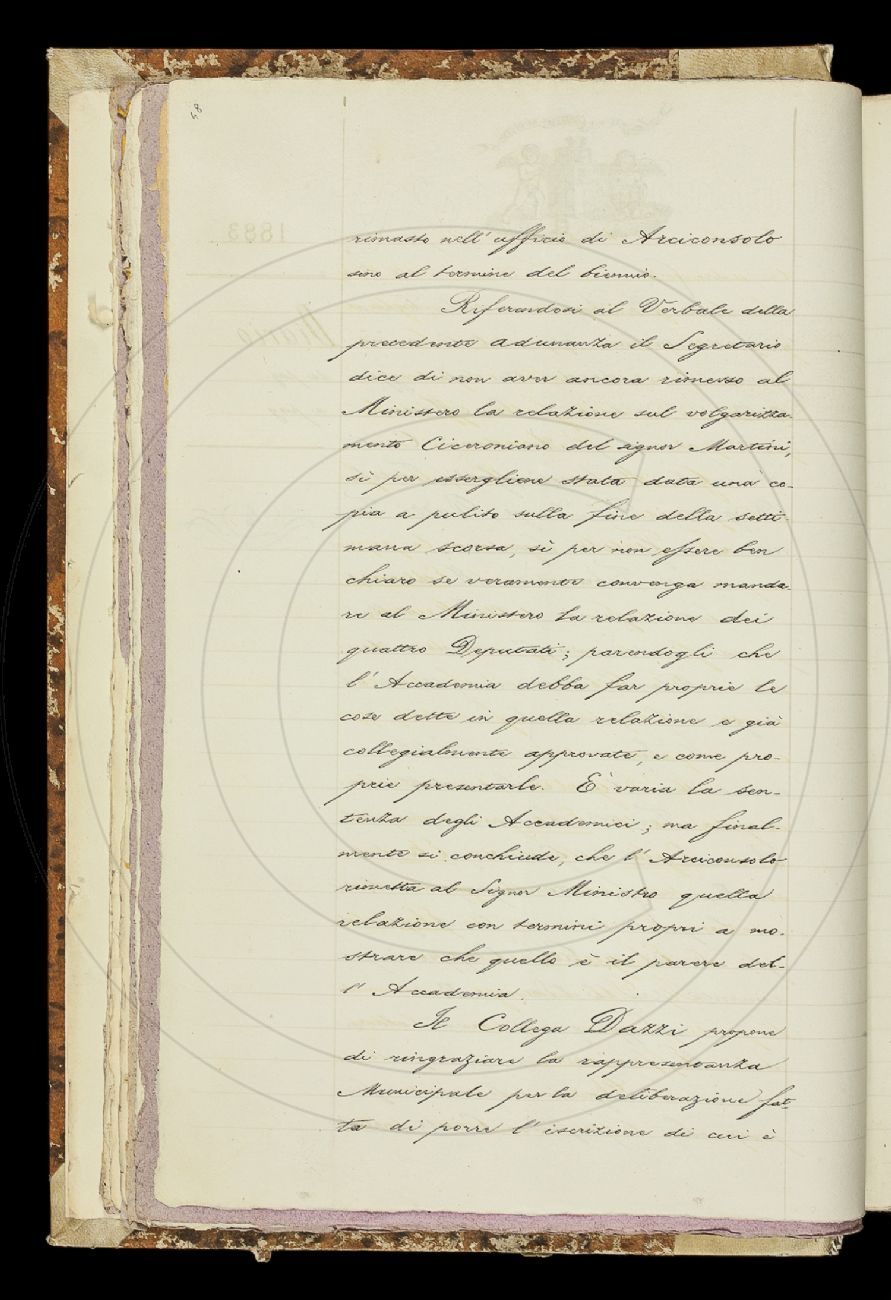 58
rimasto nell' ufficio di Arciconsolo
sino al termine del biennio.
Riferendosi al Verbale della
precedente adunanza il Segretario
dice di non aver ancora rimesso al
Ministero la relazione sul volgarizza-
mento Ciceroniano del signor Martini,
sì per essergliene stata data una co-
pia a pulito sulla fine della setti-
mana scorsa, sì per non essere ben
chiaro se veramente convenga manda-
re al Ministero la relazione dei
quattro Deputati; parendogli che
l' Accademia debba far proprie le
cose dette in quella relazione e già
collegialmente approvate, e come pro-
prie presentarle. È varia la sen-
tenza degli Accademici; ma final-
mente si conchiude, che l' Arciconsolo
rimetta al Signor Ministro quella
relazione con termini propri a mo-
strare che quello è il parere del-
l' Accademia.
Il Collega Dazzi propone
di ringraziare la rappresentanza
Municipale per la deliberazione fat-
ta di porre l' iscrizione di cui è